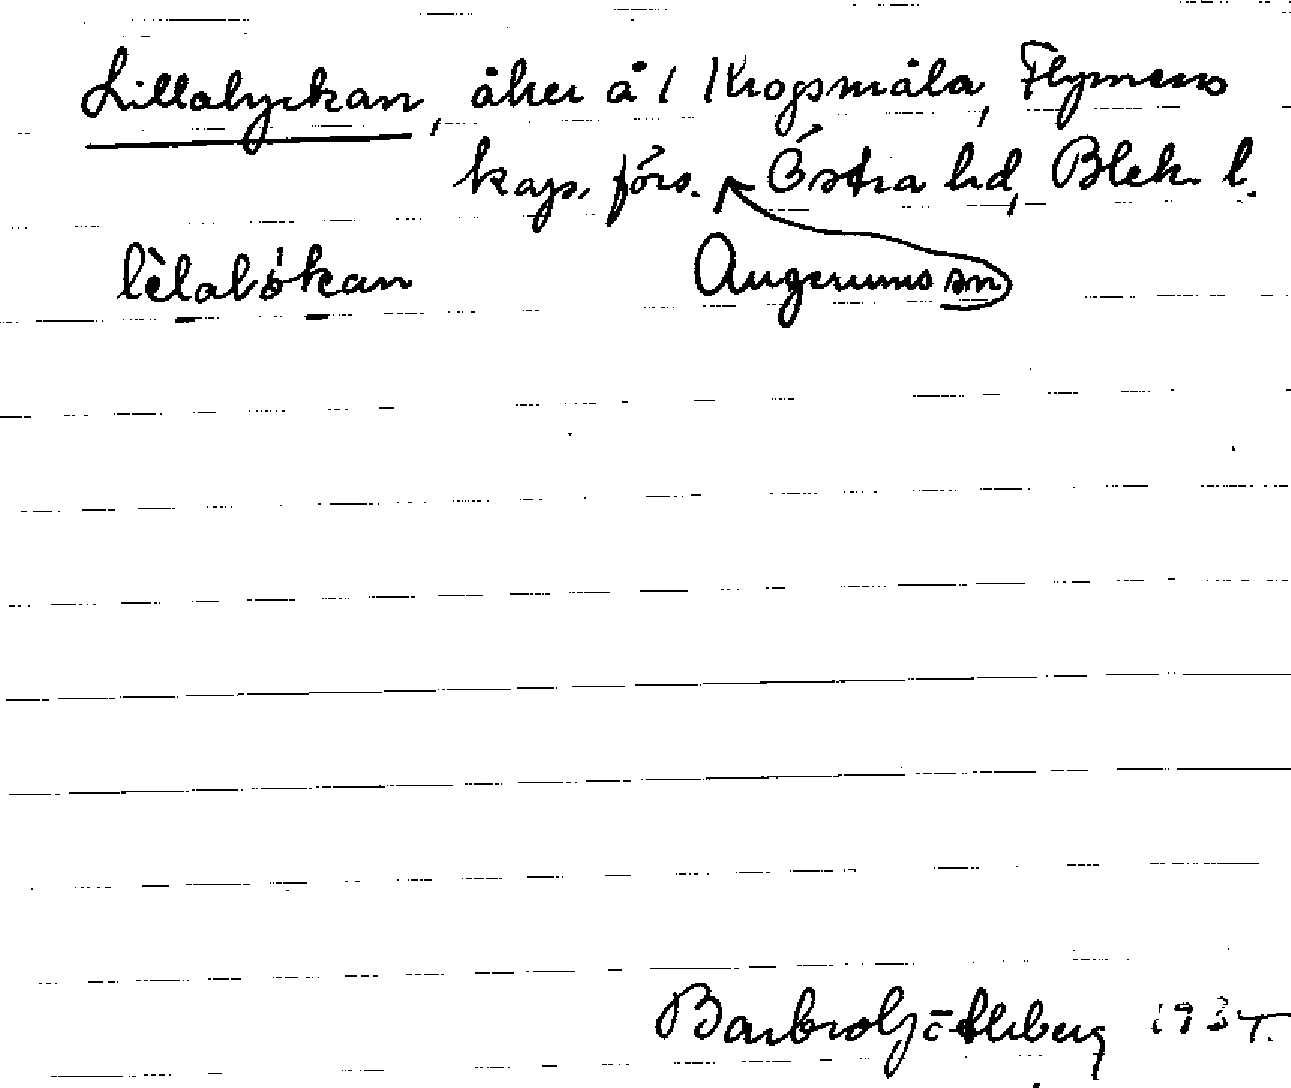 Lillalyckan, åker å 1 Krogsmåla, Flymens
kaps. förs. Östra hd, Blek. l.
lèlaløkan Augerums sn
Barbro 193